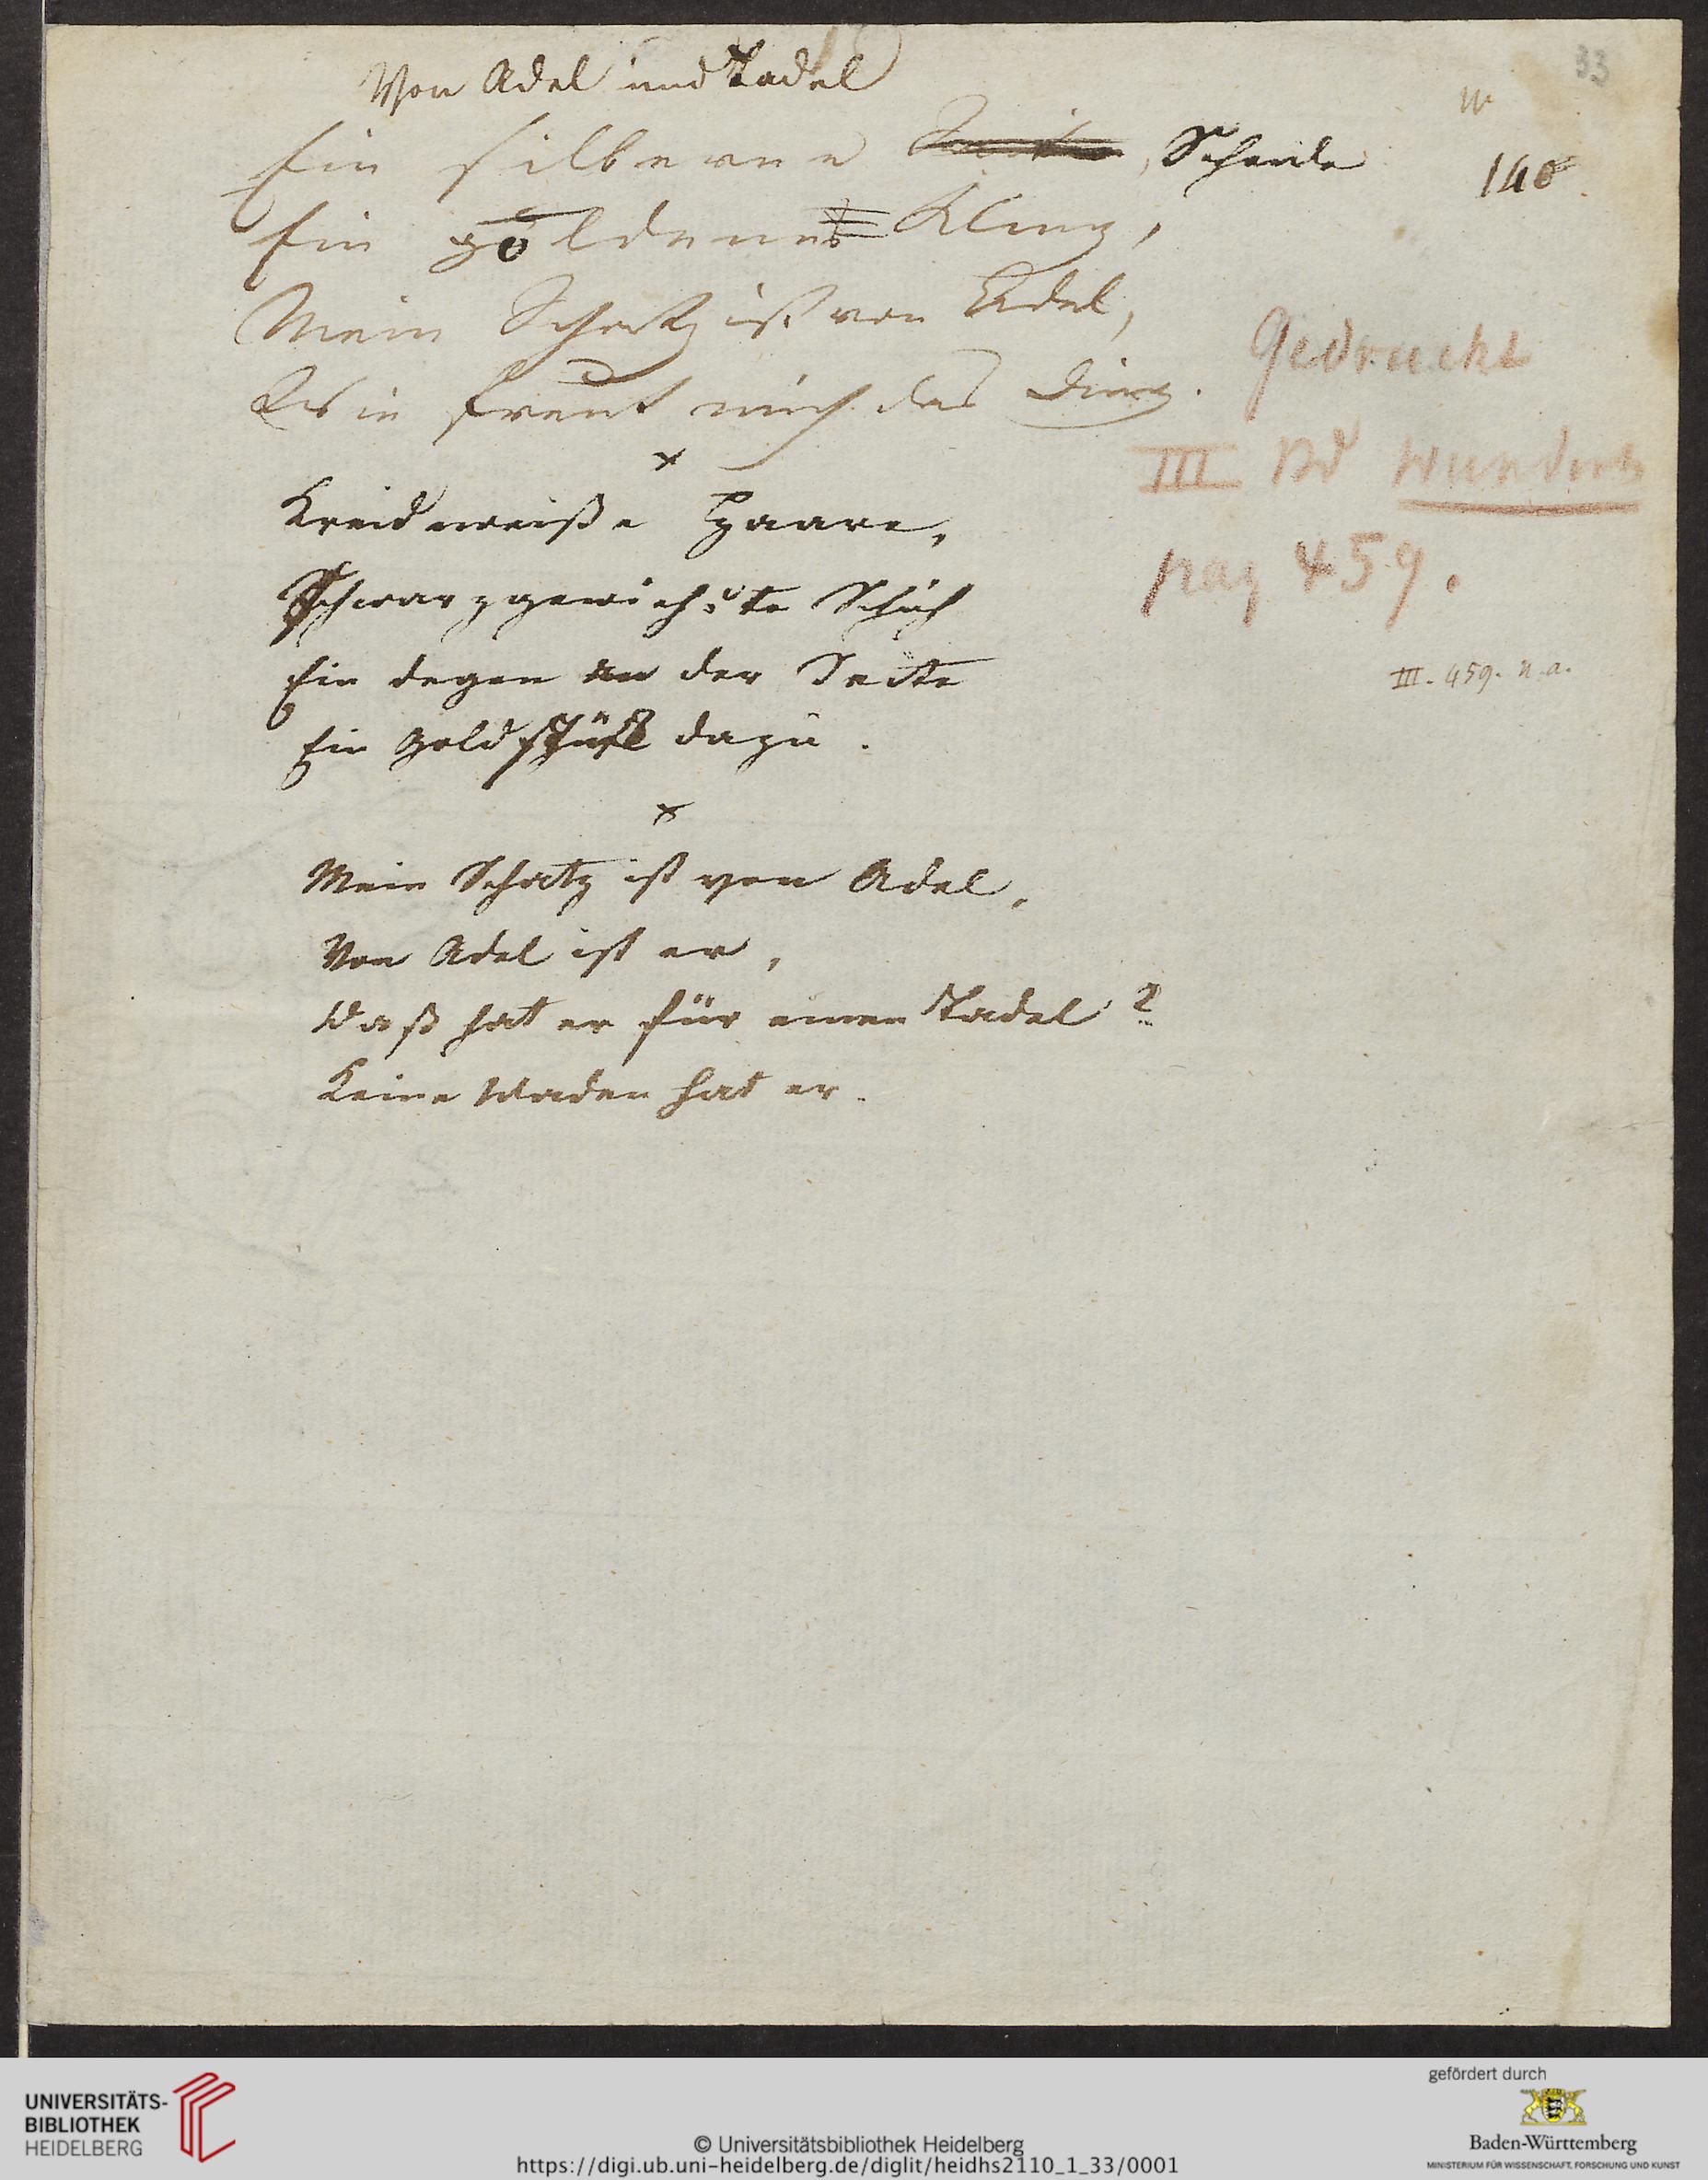 33
Von Adel und Tadel
Ein silberne Scheide
140
Ein goldene Kling,
Mein Schatz ist von Adel,
Wie freut mich das Ding.
Gedruckt
III Bd Wunderh
pag 459.
III. 459. n. a.
x
Kreidweiße Haare,
Schwarzgewichste Schuh
Ein Degen an der Seite
Ein Gold dazu.
x
Mein Schatz ist von Adel,
Von Adel ist er,
Waß hat er für einen Tadel?
Keine Waden hat er.
UNIVERSITÄTS-
BIBLIOTHEK
HEIDELBERG
© Universitätsbibliothek Heidelberg
https://digi.ub.uni-heidelberg.de/diglit/heidhs2110_1_33/0001
gefördert durch
Baden-Württemberg
MINISTERIUM FÜR WISSENSCHAFT, FORSCHUNG UND KUNST